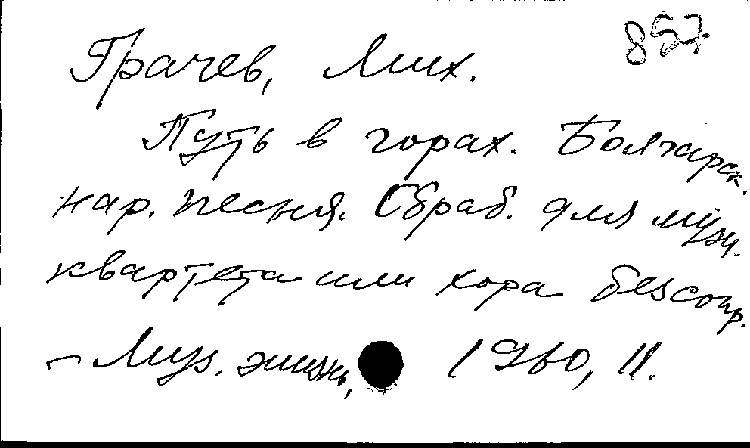 857.
Грачев, Мих.
Путь в горах. Болгарск.
нар. песня. Обраб. для муж.
квартета или хора без сопр.
— Муз. жизнь, 1960, 11.